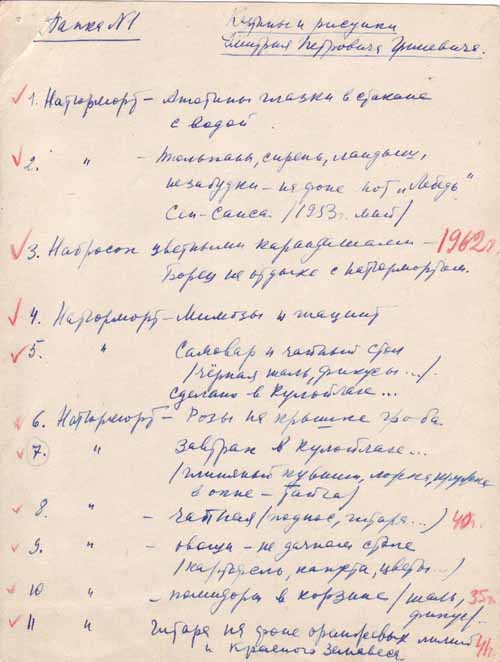 Папка N1
Картины и рисунки
Дмитрия Петровича Фишевича.
1. Натюрморт – Анютины глазки в стакане
с водой.
2. " – Тюльпаны, сирень, ландыш,
незабудки – на фоне нот „Лебедь"
Сен-Санса. /1953г. май/
3. Набросок цветными карандашами – 1962г.
Борец на отдыхе с натюрмортом.
4. Натюрморт – Мимозы и гиацинт
5. " Самовар и чайный стол
/чёрная шаль, фикусы.../.
сделано в Кулойлаге...
6. Натюрморт – Розы на крышке гроба.
7. " Завтрак в Кулойлаге...
/глиняный кувшин, кружка
в окне – тайга/
8. " – чайная /поднос, гитара.../ 40г.
9. " – овощи – на дачном столе
/картофель, капуста, цветы.../
10 " – помидоры в корзине /шаль, 35г.
фикус/.
11 " гитара на фоне оранжевых лилий 41г.
и красного занавеса